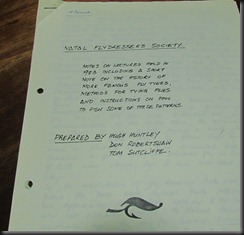 NATAL FLYDRESSERS SOCIETY.
NOTES ON LECTURES HELD IN
1983 INCLUDING A SHORT
NOTE ON THE HISTORY OF
MORE FAMOUS FLY TYERS,
METHODS FOR TYING FLIES
AND INSTRUCTIONS ON HOW
TO FISH SOME OF THESE PATTERNS.
PREPARED BY HUGH HUNTLEY
DON ROBERTSHAW
TOM SUTCLIFFE.